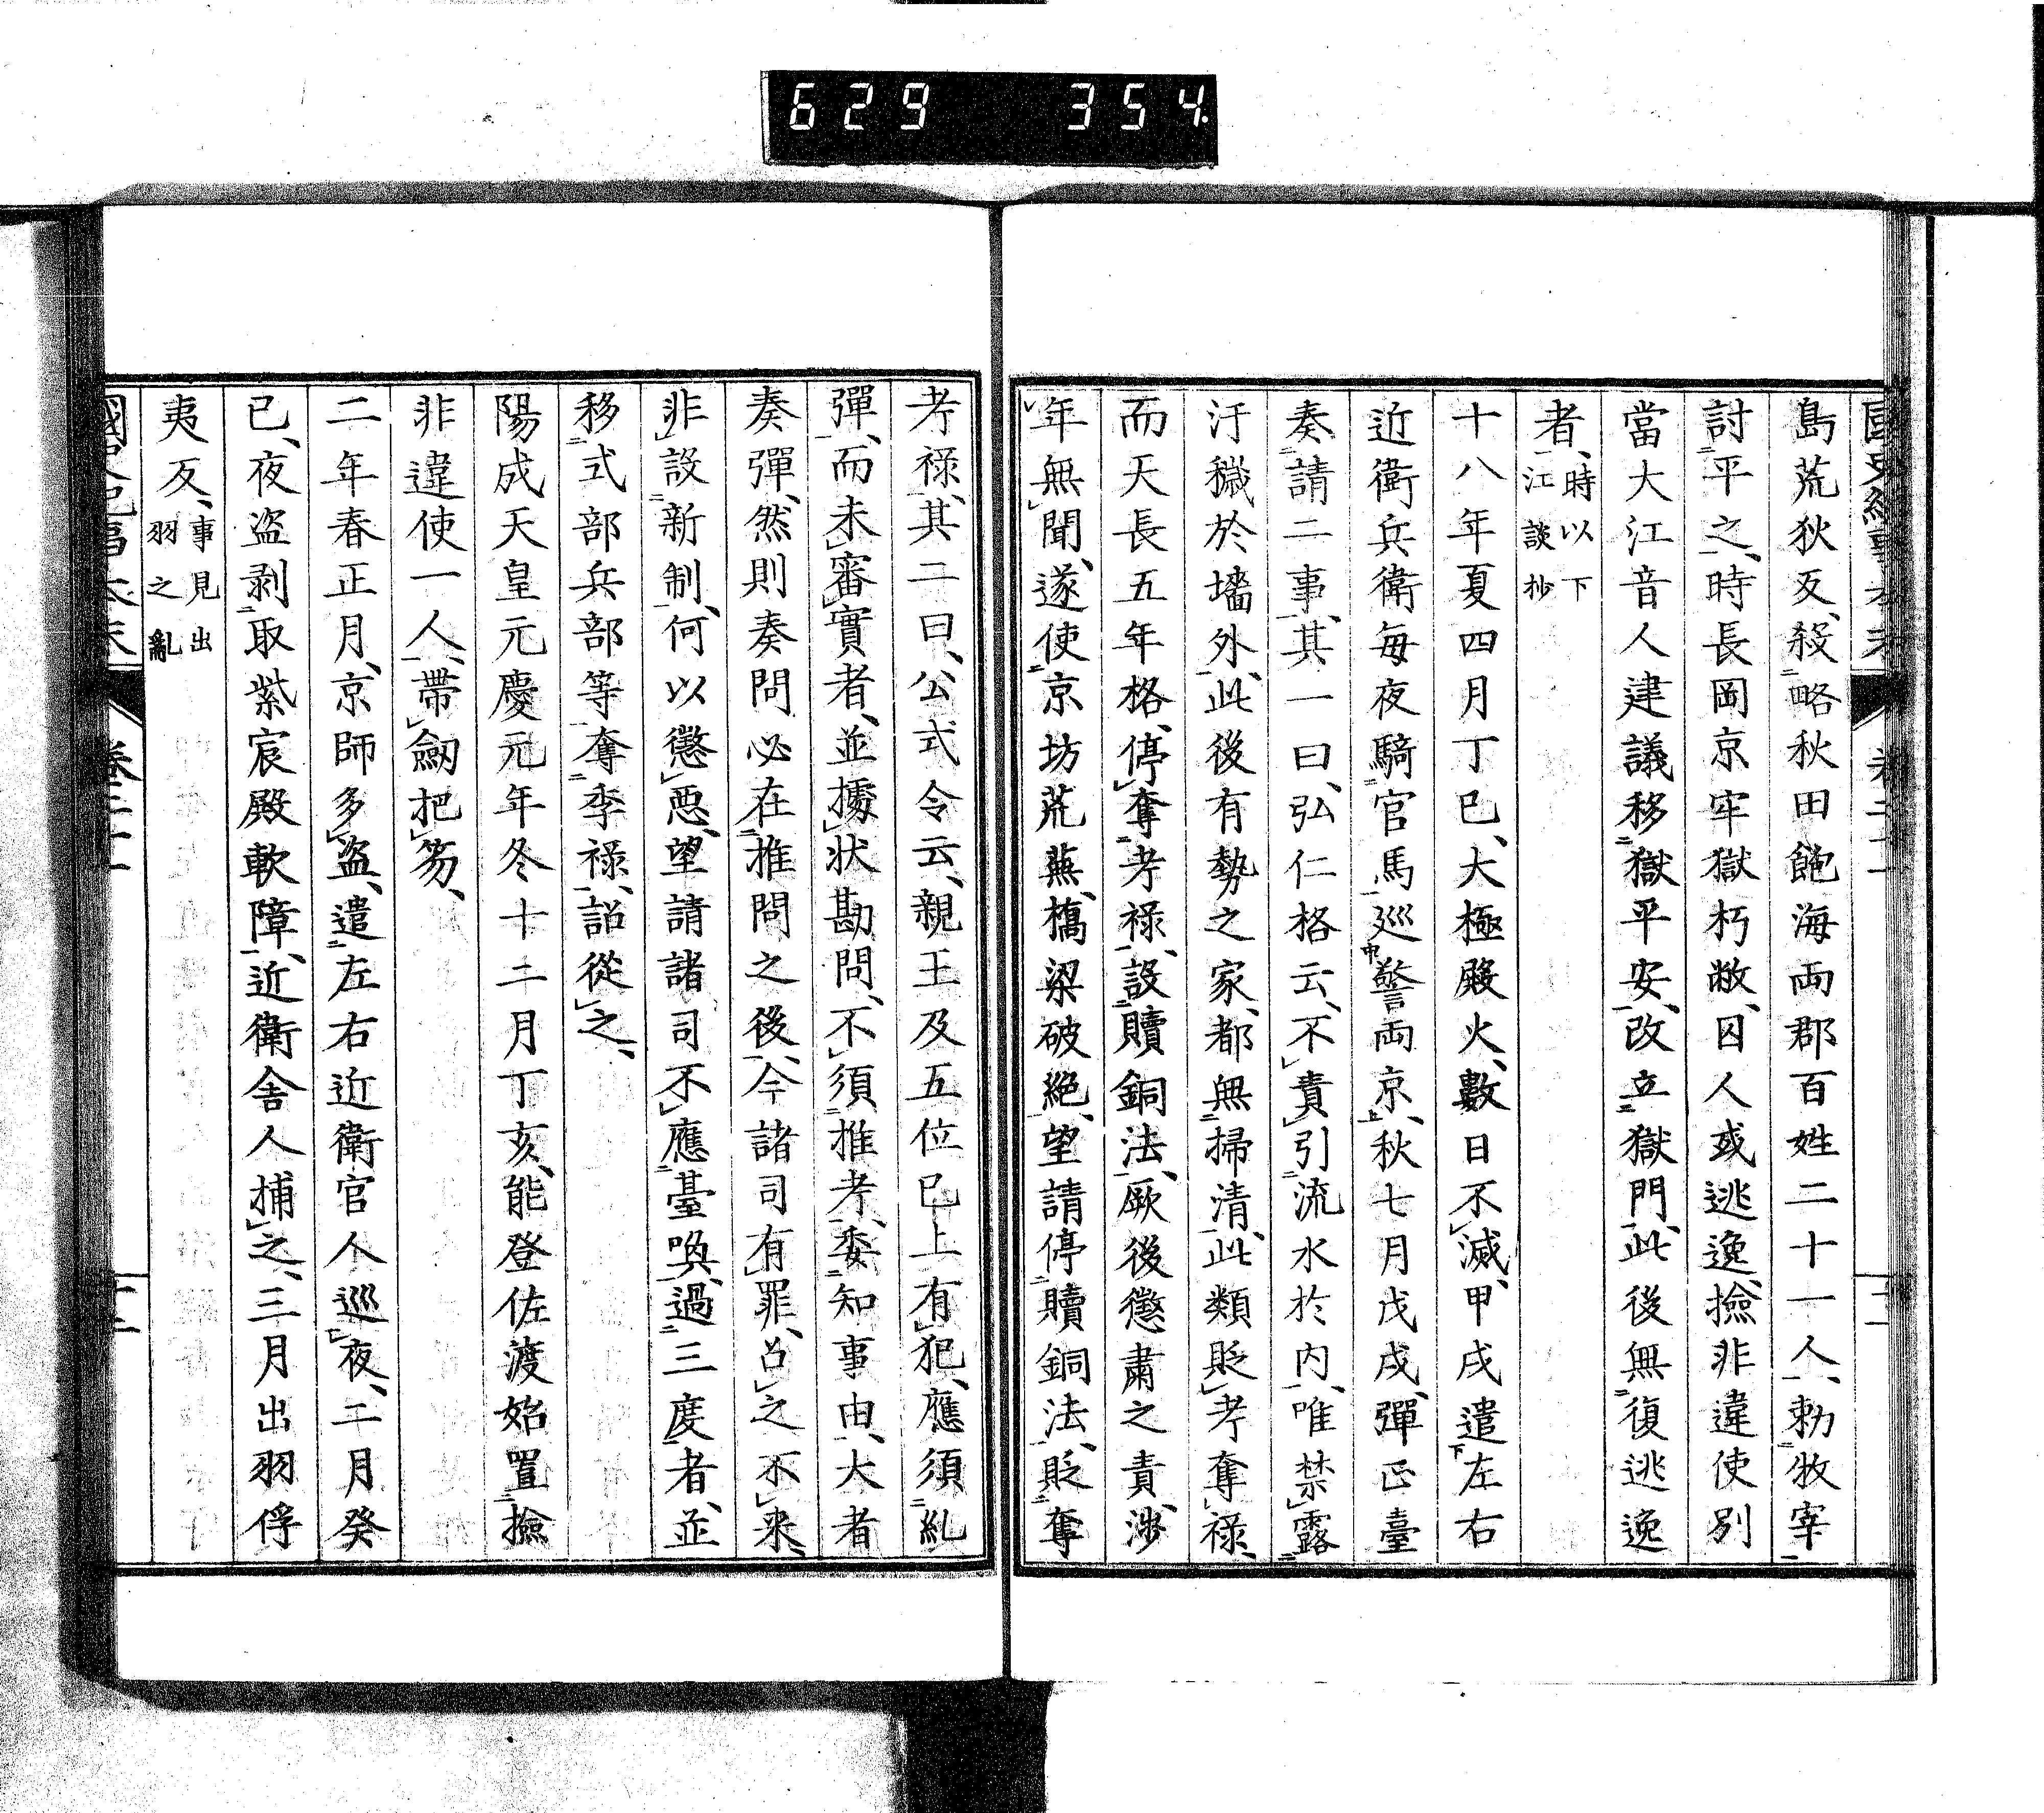 629 354
島荒狄反、殺略秋田飽海両郡百姓二十一人、勅牧宰
討平之、時長岡京牢獄朽敝、囚人或逃逸、撿非違使別
當大江音人建議移獄平安、改立獄門、此後無復逃逸
者、時以下江談抄
十八年夏四月丁巳、大極殿火、數日不滅、甲戌遣左右
近衛兵衛毎夜騎官馬巡警両京、秋七月戊戌、彈正臺
奏請二事、其一曰、弘仁格云、不責引流水於内、唯禁露
汙穢於墻外、此後有勢之家、都無掃清、此類貶考奪禄、
而天長五年格、停奪考禄、設贖銅法、厥後懲肅之責、渉
年無聞、遂使京坊荒蕪、橋梁破絶、望請停贖銅法、貶奪
考禄、其二曰、公式令云、親王及五位已上有犯、應須糺
彈、而未審實者、並據状勘問、不須推考、委知事由、大者
奏彈、然則奏問必在推問之後、今諸司有罪、召之不来、
非設新制、何以懲惡、望請諸司不應臺喚、過三度者、並
移式部兵部等奪季禄、詔從之、
陽成天皇元慶元年冬十二月丁亥、能登佐渡始置撿
非違使一人、帶劔把笏、
二年春正月、京師多盗、遣左右近衛官人巡夜、二月癸
已、夜盗剥取紫宸殿軟障、近衛舎人捕之、三月出羽俘
夷反、事見出羽之亂
國史紀事本末 卷二十一 十二